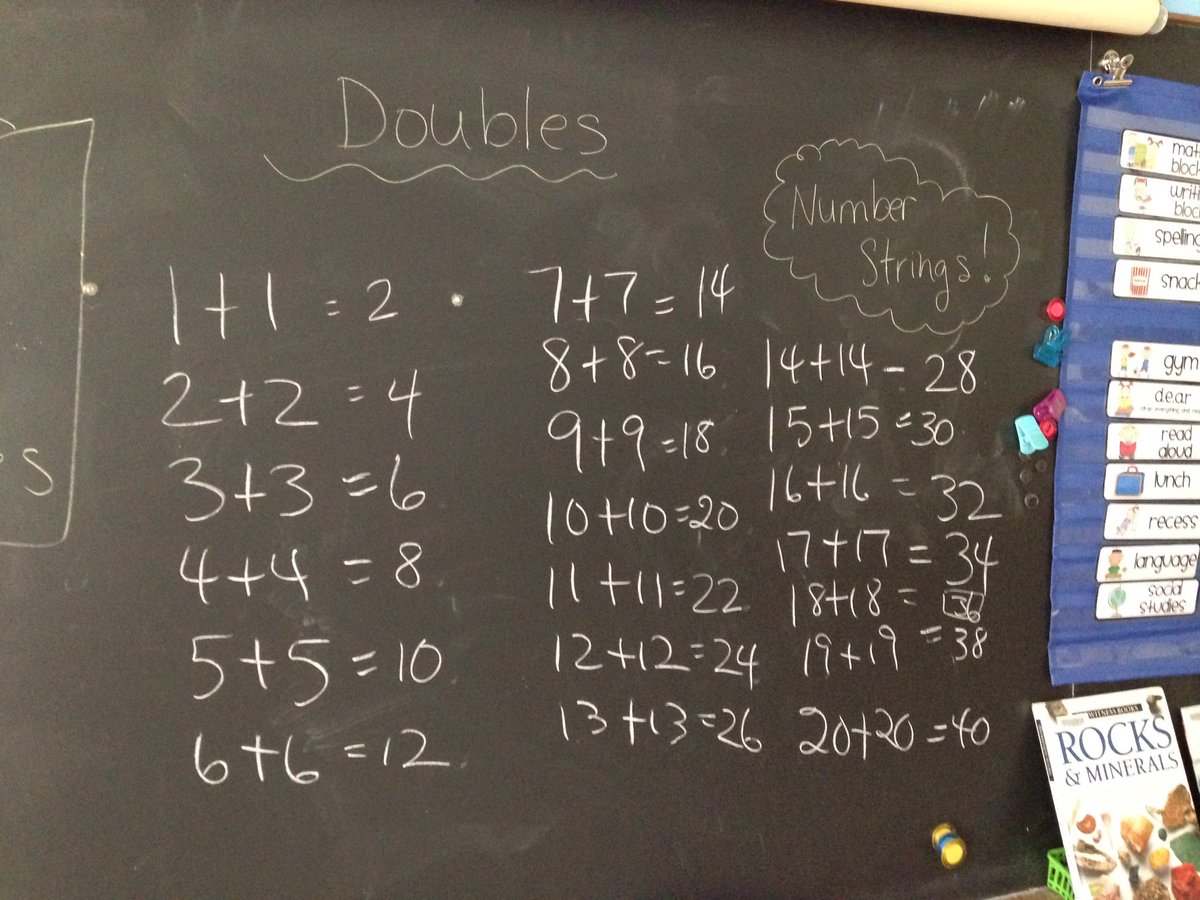 Doubles
Number
Strings!
1+1 = 2
2+2 = 4
3+3 = 6
4+4 = 8
5+5 = 10
6+6 = 12
7+7 = 14
8+8 = 16
9+9 = 18
10+10 = 20
11+11 = 22
12+12 = 24
13+13 = 26
14+14 - 28
15+15 = 30
16+16 = 32
17+17 = 34
18+18 = 36
19+19 = 38
20+20 = 40
s
mat
block
writi
bloc
spelling
snack
gym
d.e.a.r
read
aloud
lunch
recess
language
social
studies
WITNESS BOOKS
ROCKS
& MINERALS